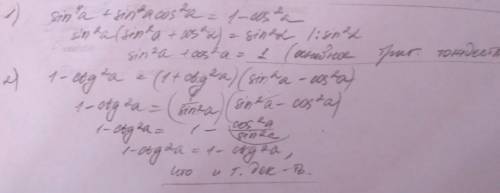 1) sin⁴a + sin²a cos²a = 1 - cos²a
sin²a (sin²a + cos²a) = sin²a |: sin²a
sin²a + cos²a = 1 (основное триг. тождеств
2) 1 - ctg²a = (1 + ctg²a)(sin²a - cos²a)
1 - ctg²a = (1/sin²a)(sin²a - cos²a)
1 - ctg²a = 1 - cos²a/sin²a
1 - ctg²a = 1 - ctg²a,
что и т. док-ть.